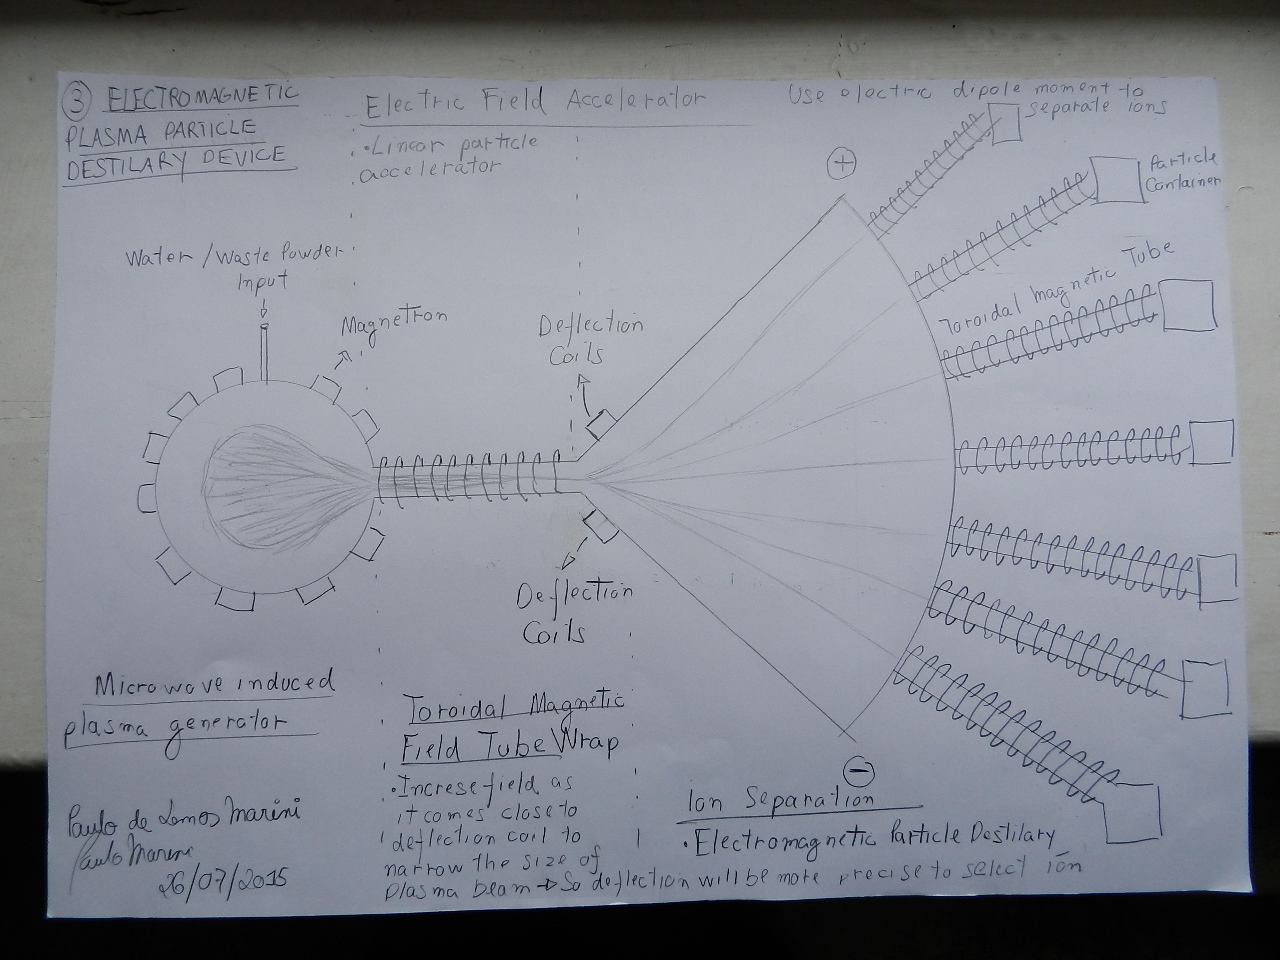 3 ELECTROMAGNETIC
PLASMA PARTICLE
DESTILARY DEVICE
Electric Field Accelerator
• Linear particle
accelerator
Use electric dipole moment to
separate ions
+
Particle
Container
Toroidal magnetic Tube
Water / Waste Powder
Input
Magnetron
Deflection
Coils
Deflection
Coils
Microwave induced
plasma generator
Toroidal Magnetic
Field Tube Wrap
• Increse field as
it comes close to
deflection coil to
narrow the size of
plasma beam → So deflection will be more precise to select ion
−
Ion Separation
• Electromagnetic Particle Destilary
Paulo de Lemos Marini
Paulo Marini
26/07/2015